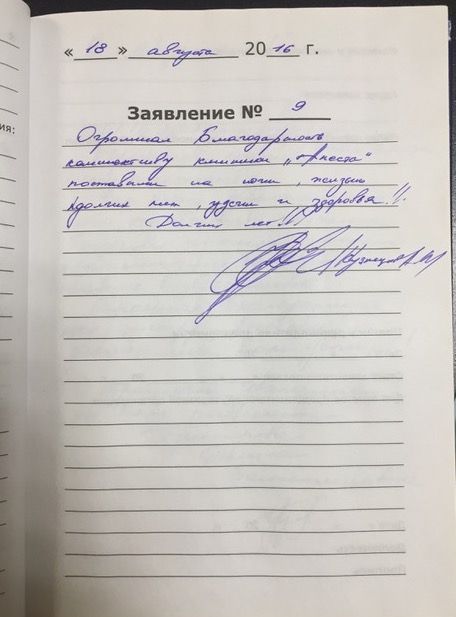 « 18 » августа 20 16 г.
Заявление № 9
Огромная Благодарность
коллективу клиники
поставили на ноги, жизни
долгих лет, удачи и здоровья!!.
Долгих лет!!!
Кузнецов
ия: